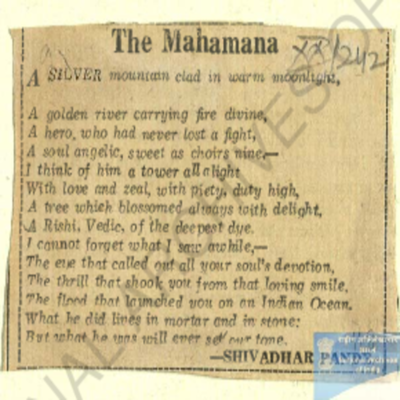 The Mahamana
XX/242
A SILVER mountain clad in warm moonlight,
A golden river carrying fire divine,
A hero, who had never lost a fight,
A soul angelic, sweet as choirs nine,—
I think of him a tower all alight
With love and zeal, with piety, duty high,
A tree which blossomed always with delight,
A Rishi, Vedic, of the deepest dye.
I cannot forget what I saw awhile,—
The eye that called out all your soul's devotion,
The thrill that shook you from that loving smile,
The flood that launched you on an Indian Ocean.
What he did lives in mortar and in stone:
But what he was will ever set our tone.
—SHIVADHAR PANDE